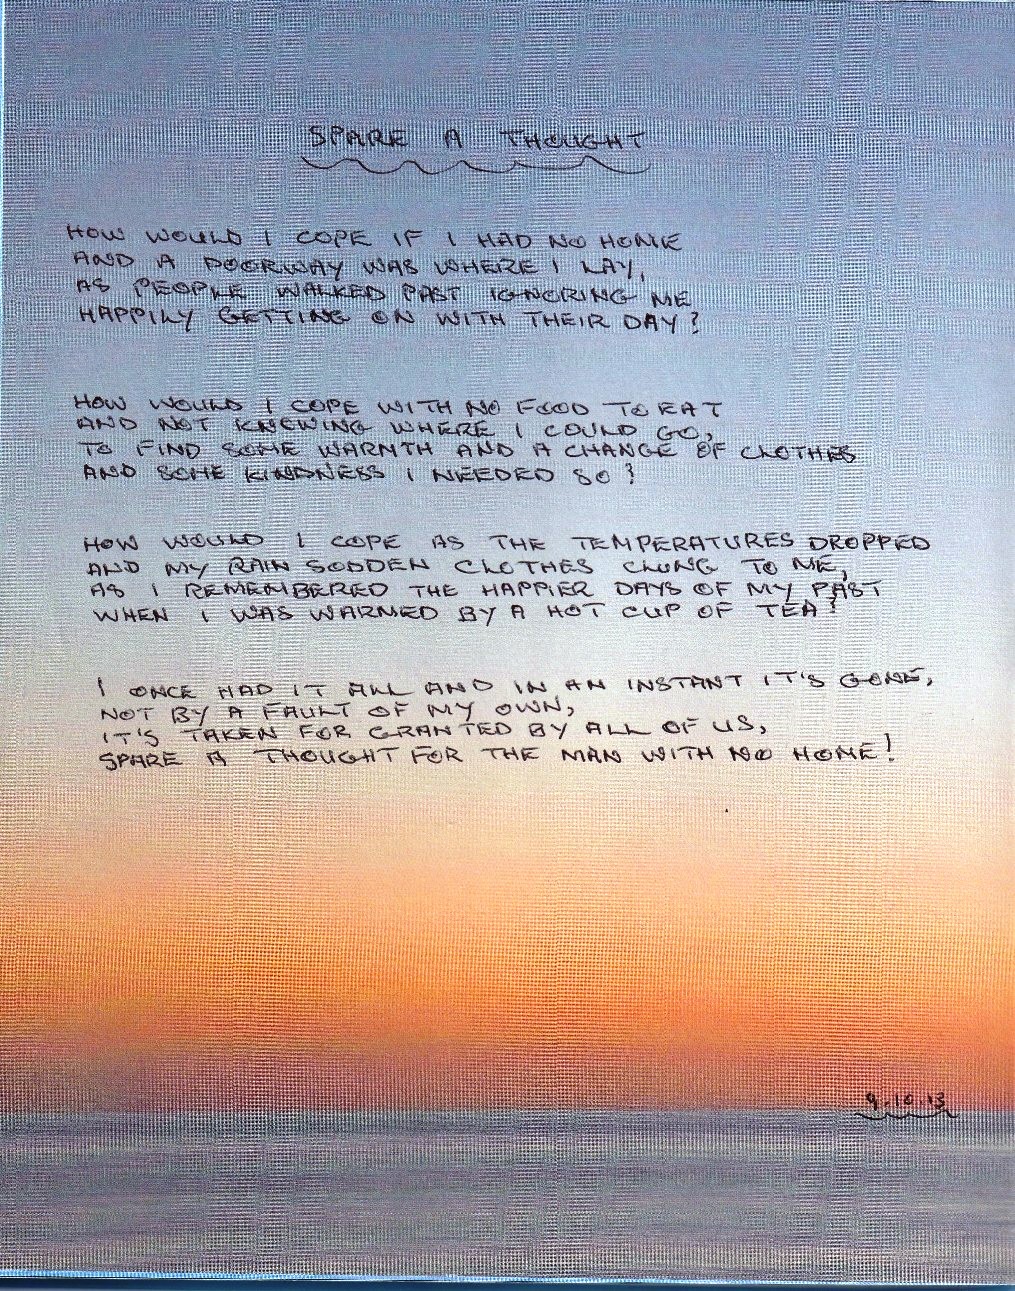 SPARE A THOUGHT
HOW WOULD I COPE IF I HAD NO HOME
AND A DOORWAY WAS WHERE I LAY,
AS PEOPLE WALKED PAST IGNORING ME
HAPPILY GETTING ON WITH THEIR DAY?
HOW WOULD I COPE WITH NO FOOD TO EAT
AND NOT KNOWING WHERE I COULD GO,
TO FIND SOME WARMTH AND A CHANGE OF CLOTHES
AND SOME KINDNESS I NEEDED SO?
HOW WOULD I COPE AS THE TEMPERATURES DROPPED
AND MY RAIN SODDEN CLOTHES CLUNG TO ME,
AS I REMEMBERED THE HAPPIER DAYS OF MY PAST
WHEN I WAS WARMED BY A HOT CUP OF TEA?
I ONCE HAD IT ALL AND IN AN INSTANT IT'S GONE,
NOT BY A FAULT OF MY OWN,
IT'S TAKEN FOR GRANTED BY ALL OF US,
SPARE A THOUGHT FOR THE MAN WITH NO HOME!
9.10.13